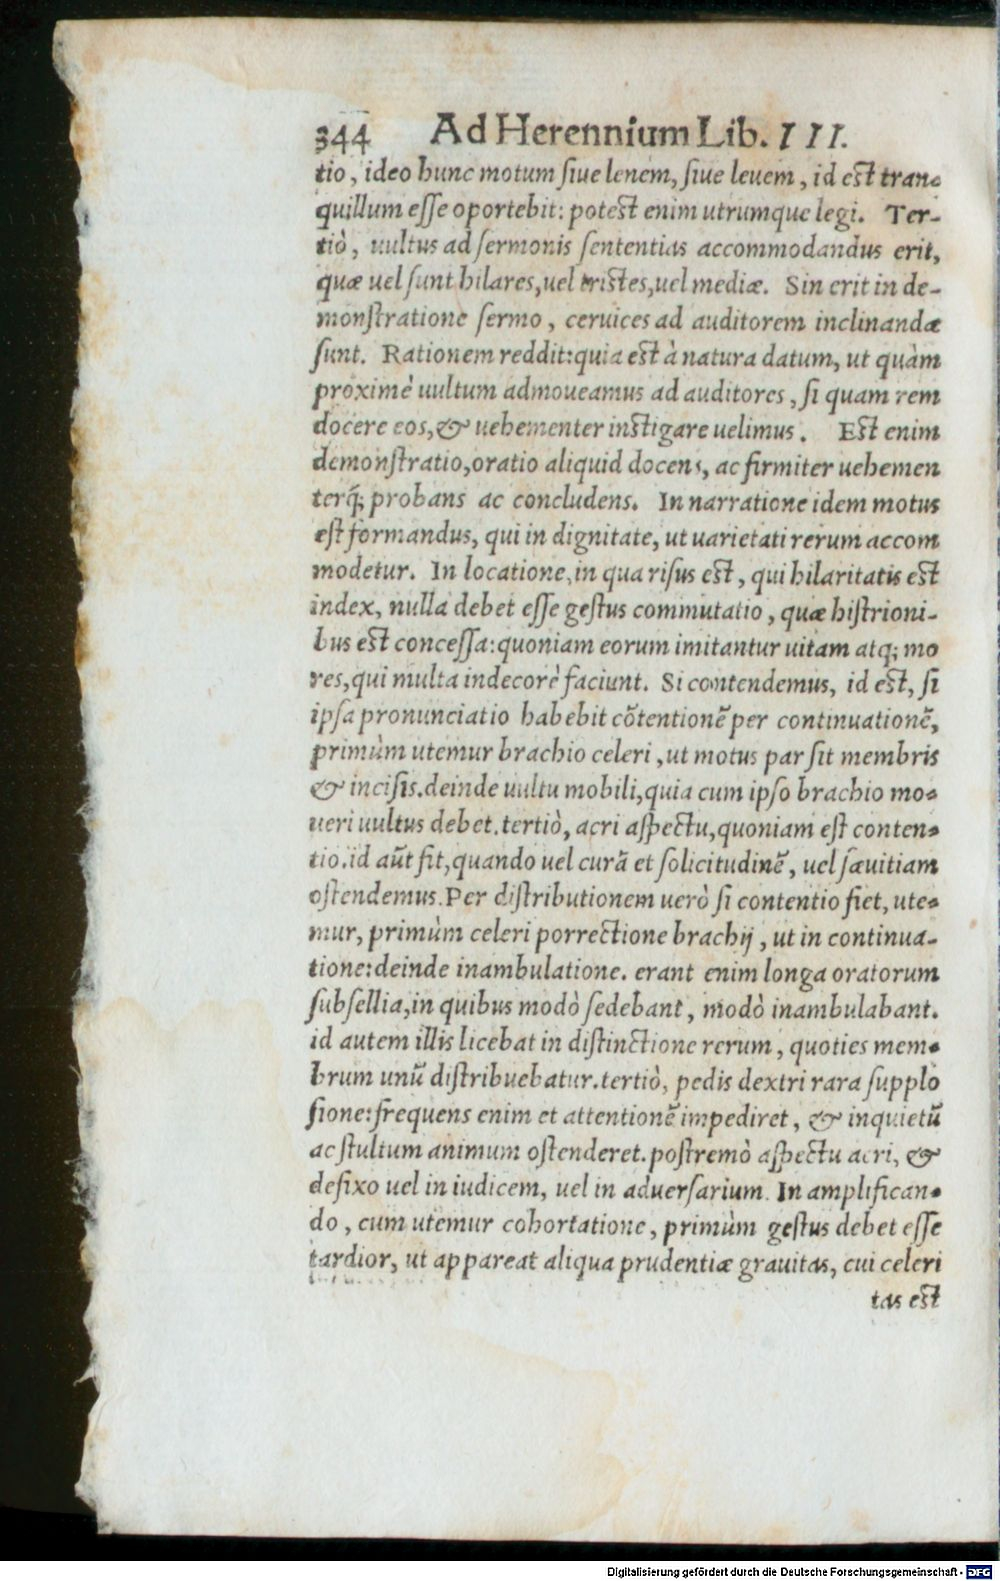 344 Ad Herennium Lib. III.
tio, ideo hunc motum ſiue lenem, ſiue leuem, id est tran-
quillum eſſe oportebit: potest enim utrumque legi. Ter-
tiò, uultus ad ſermonis ſententias accommodandus erit,
quæ uel ſunt hilares, uel tristes, uel mediæ. Sin erit in de-
monſtratione ſermo, ceruices ad auditorem inclinandæ
ſunt. Rationem reddit: quia est à natura datum, ut quàm
proximè uultum admoueamus ad auditores, ſi quam rem
docere eos, & uehementer instigare uelimus. Est enim
demonſtratio, oratio aliquid docens, ac firmiter uehemen
terq́; probans ac concludens. In narratione idem motus
eſt formandus, qui in dignitate, ut uarietati rerum accom
modetur. In locatione, in qua riſus est, qui hilaritatis est
index, nulla debet eſſe geſtus commutatio, quæ hiſtrioni-
bus est conceſſa: quoniam eorum imitantur uitam atq; mo
res, qui multa indecorè faciunt. Si contendemus, id est, ſi
ipſa pronunciatio habebit cõtentionẽ per continuationẽ,
primùm utemur brachio celeri, ut motus par ſit membris
& inciſis. deinde uultu mobili, quia cum ipſo brachio mo-
ueri uultus debet. tertiò, acri aſpectu, quoniam eſt conten-
tio. id aũt fit, quando uel curã et ſolicitudinẽ, uel ſæuitiam
oſtendemus. Per diſtributionem uerò ſi contentio fiet, ute-
mur, primùm celeri porrectione brachij, ut in continua-
tione: deinde inambulatione. erant enim longa oratorum
ſubſellia, in quibus modò ſedebant, modò inambulabant.
id autem illis licebat in diſtinctione rerum, quoties mem-
brum unũ diſtribuebatur. tertiò, pedis dextri rara ſupplo
ſione: frequens enim et attentionẽ impediret, & inquietũ
ac ſtultum animum oſtenderet. poſtremò aſpectu acri, &
defixo uel in iudicem, uel in aduerſarium. In amplifican-
do, cum utemur cohortatione, primùm geſtus debet eſſe
tardior, ut appareat aliqua prudentiæ grauitas, cui celeri
tas est
Digitalisierung gefördert durch die Deutsche Forschungsgemeinschaft - DFG